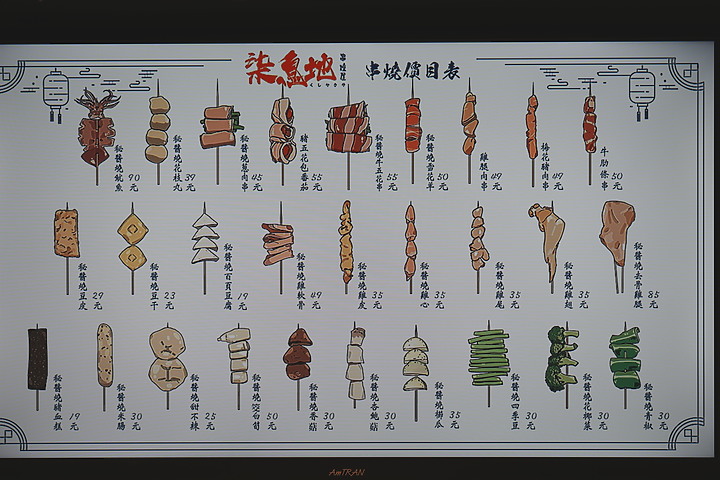 柒息地
串燒屋
くしやきや
串燒價目表
秘醬燒魷魚 90元
秘醬燒花枝丸 39元
秘醬燒蔥肉串 45元
豬五花包番茄 55元
秘醬燒牛五花串 55元
秘醬燒雪花羊 50元
雞腿肉串 49元
梅花豬肉串 49元
牛肋條串 50元
秘醬燒豆皮 29元
秘醬燒豆干 23元
秘醬燒百頁豆腐 19元
秘醬燒雞軟骨 49元
秘醬燒雞皮 35元
秘醬燒雞心 35元
秘醬燒雞尾 35元
秘醬燒雞翅 35元
秘醬燒去骨雞腿 85元
秘醬燒豬血糕 19元
秘醬燒米腸 30元
秘醬燒甜不辣 25元
秘醬燒茭白筍 50元
秘醬燒香菇 30元
秘醬燒杏鮑菇 30元
秘醬燒櫛瓜 35元
秘醬燒四季豆 30元
秘醬燒花椰菜 30元
秘醬燒青椒 30元
AmTRAN